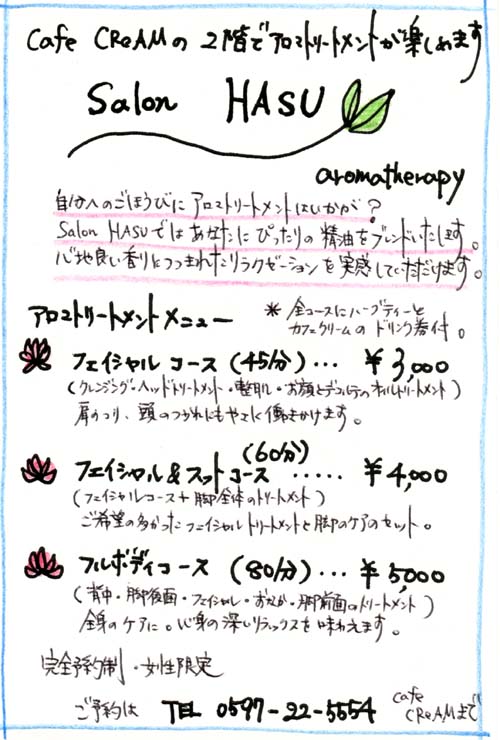 Cafe CReAMの 2階でアロマトリートメントが楽しめます
Salon HASU
aromatherapy
自分へのごほうびに アロマトリートメントはいかが?
Salon HASUでは あなたに ぴったりの 精油をブレンドいたします。
心地良い香りにつつまれたリラクゼーションを実感していただけます。
アロマトリートメントメニュー
* 全コースにハーブティーと
カフェクリームの ドリンク券付。
フェイシャル コース (45分)... ¥3,000
(クレンジング・ヘッドトリートメント・整肌・お顔とデコルテのオイルトリートメント)
肩こり、頭のつかれにもやさしく働きかけます。
(60分)
フェイシャル&フットコース ..... ¥4,000
(フェイシャルコース+脚全体のトリートメント)
ご希望の多かったフェイシャルトリートメントと脚のケアのセット。
フルボディコース (80分)... ¥5,000
(背中・脚後面・フェイシャル・おなか・脚前面のトリートメント)
全身のケアに。心身の深いリラックスを味わえます。
完全予約制・女性限定
ご予約は TEL 0597-22-5554 cafe
CReAMまで